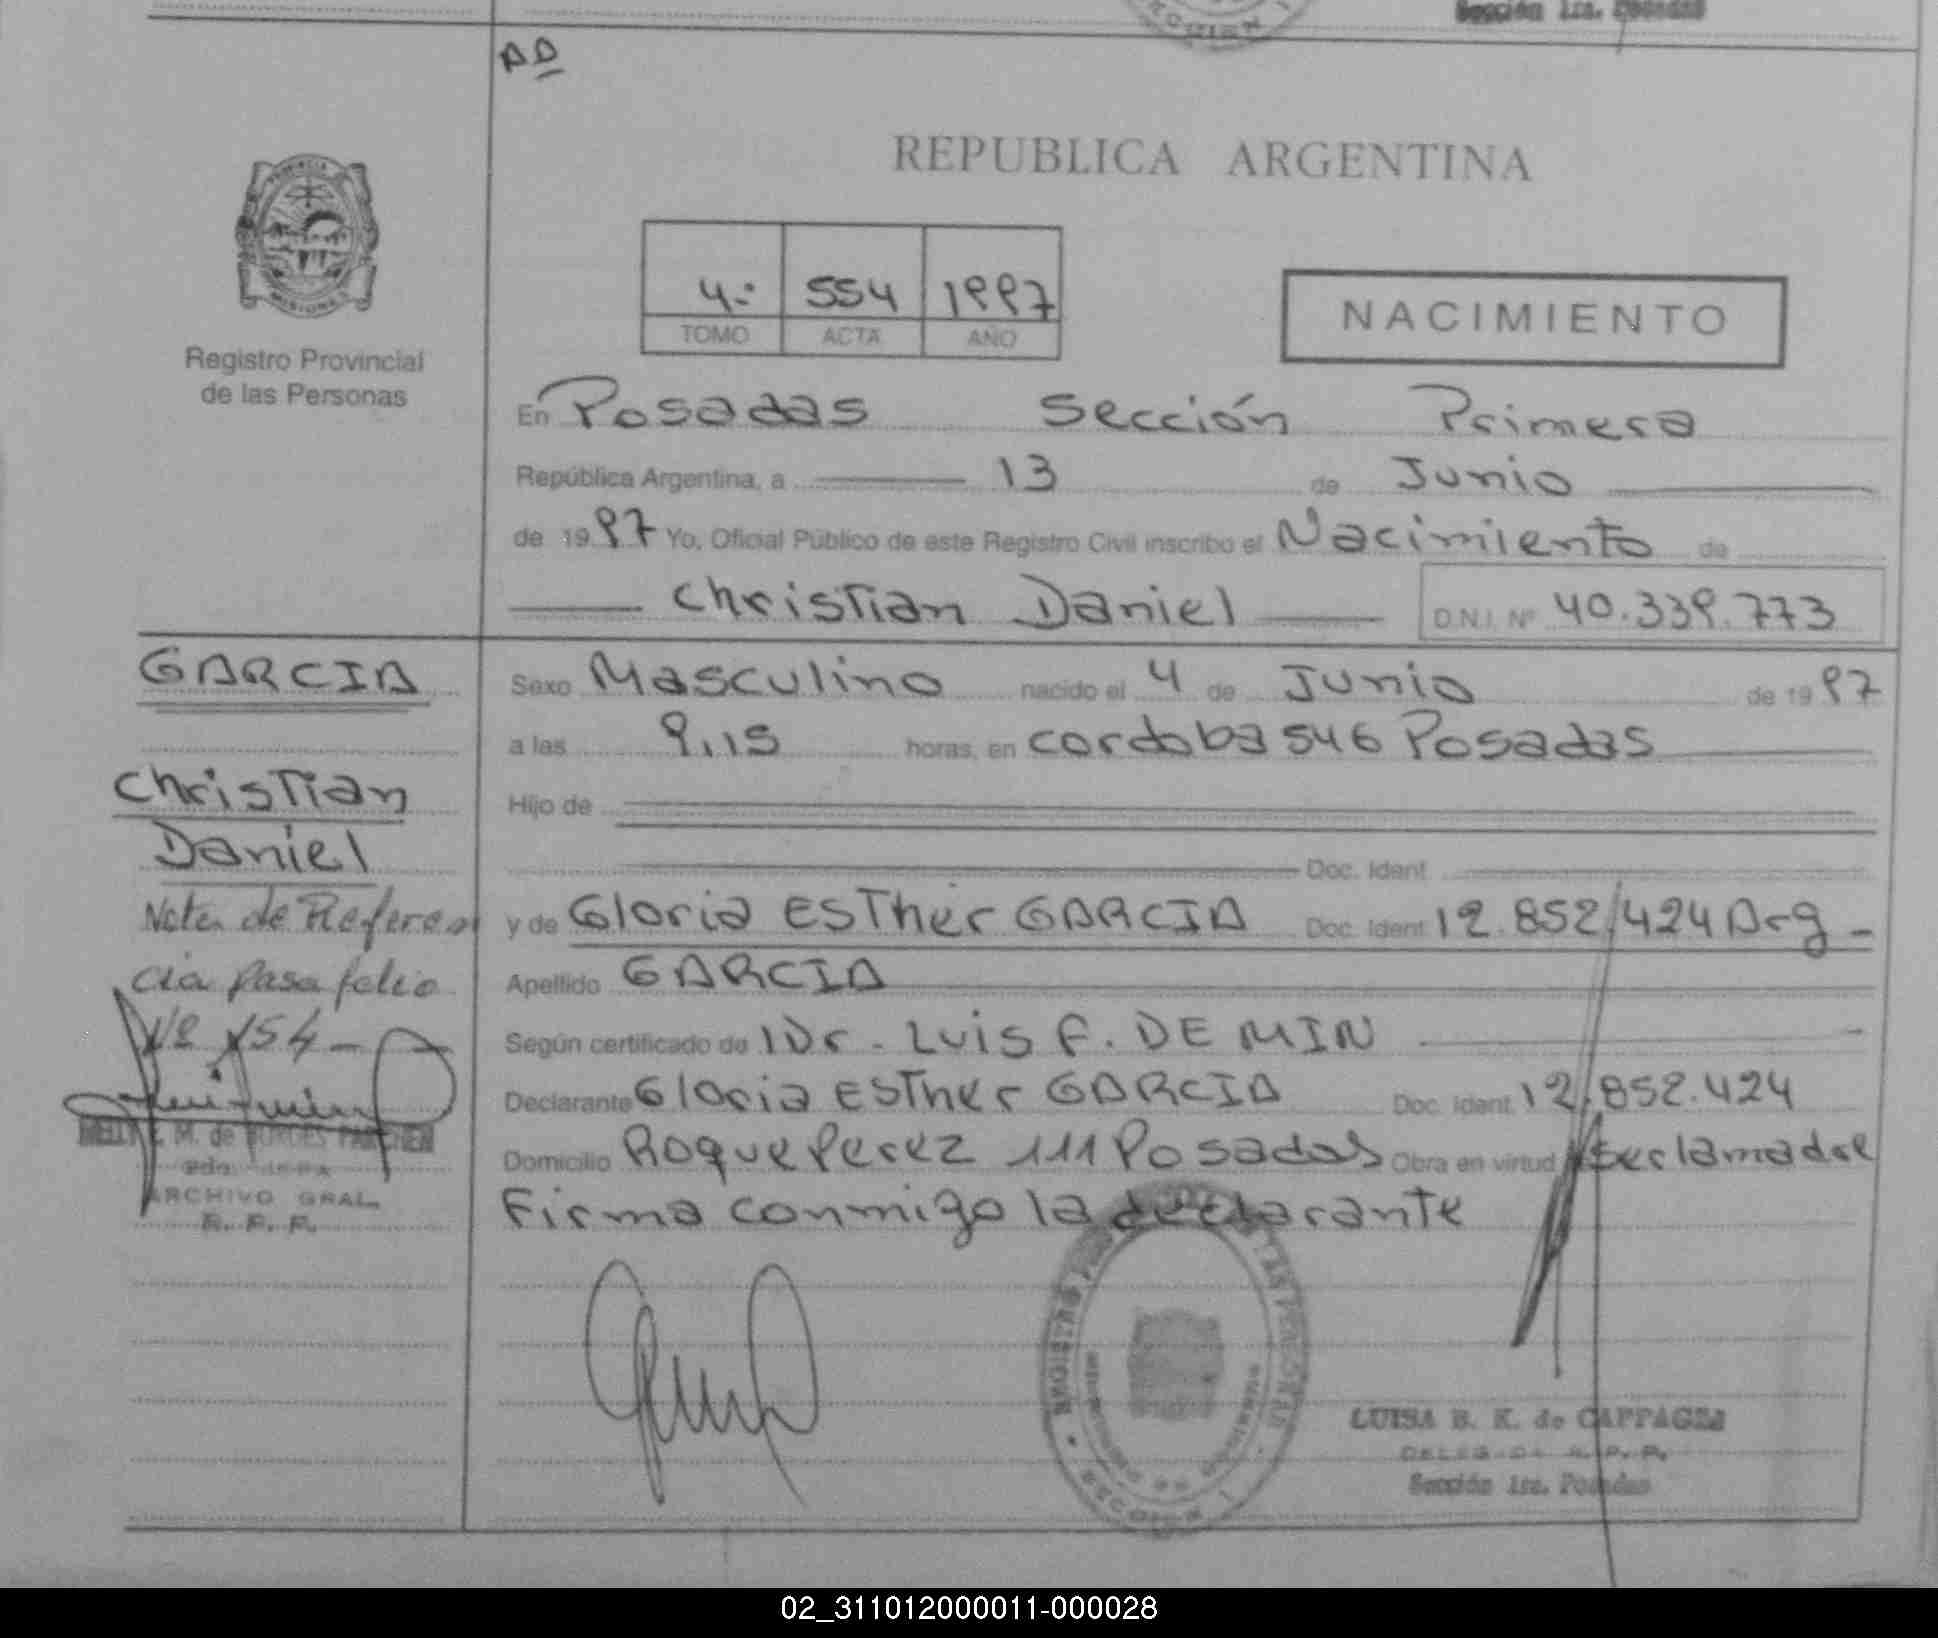 Sección 1ra. Posadas
AD
REPUBLICA ARGENTINA
PROVINCIA
MISIONES
Registro Provincial
de las Personas
4º 554 1997
TOMO ACTA AÑO
NACIMIENTO
En Posadas Sección Primera
República Argentina, a 13 de Junio
de 1997 Yo, Oficial Público de este Registro Civil inscribo el Nacimiento de
Christian Daniel D.N.I. Nº 40.339.773
GARCIA
Christian
Daniel
Nota de Referen
cia pasa folio
Nº 154-
ARCHIVO GRAL.
R. P. P.
Sexo Masculino nacido el 4 de Junio de 1997
a las 9,15 horas, en cordoba 546 Posadas
Hijo de
Doc. Ident.
y de Gloria Esther GARCIA Doc. Ident. 12.852.424 Arg-
Apellido GARCIA
Según certificado de Dr. Luis F. DE MIN
Declarante Gloria Esther GARCIA Doc. Ident. 12.852.424
Domicilio Roque Perez 111 Posadas Obra en virtud
Firma conmigo la declarante
LUISA B. K. de
R. P. P.
Sección 1ra. Posadas
02_311012000011-000028